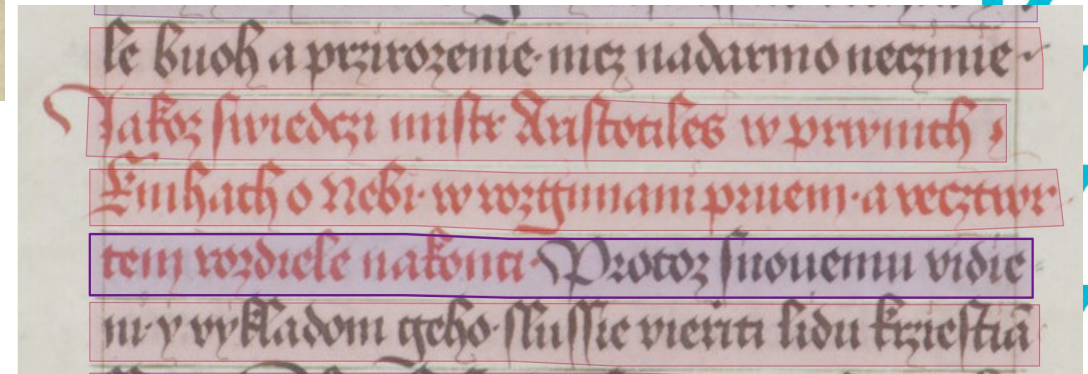 le buoh a przirozenie· nicz nadarmo neczinie·
Jakoz swiedczi mistr Aristotiles w prwnich
Knihach o Nebi· w rozgimani prwem· a wecztwr
tem rozdiele nakonci· Protoz snovemu vidie
ni· y vykladom geho· slussie vieriti lidu krziestiā